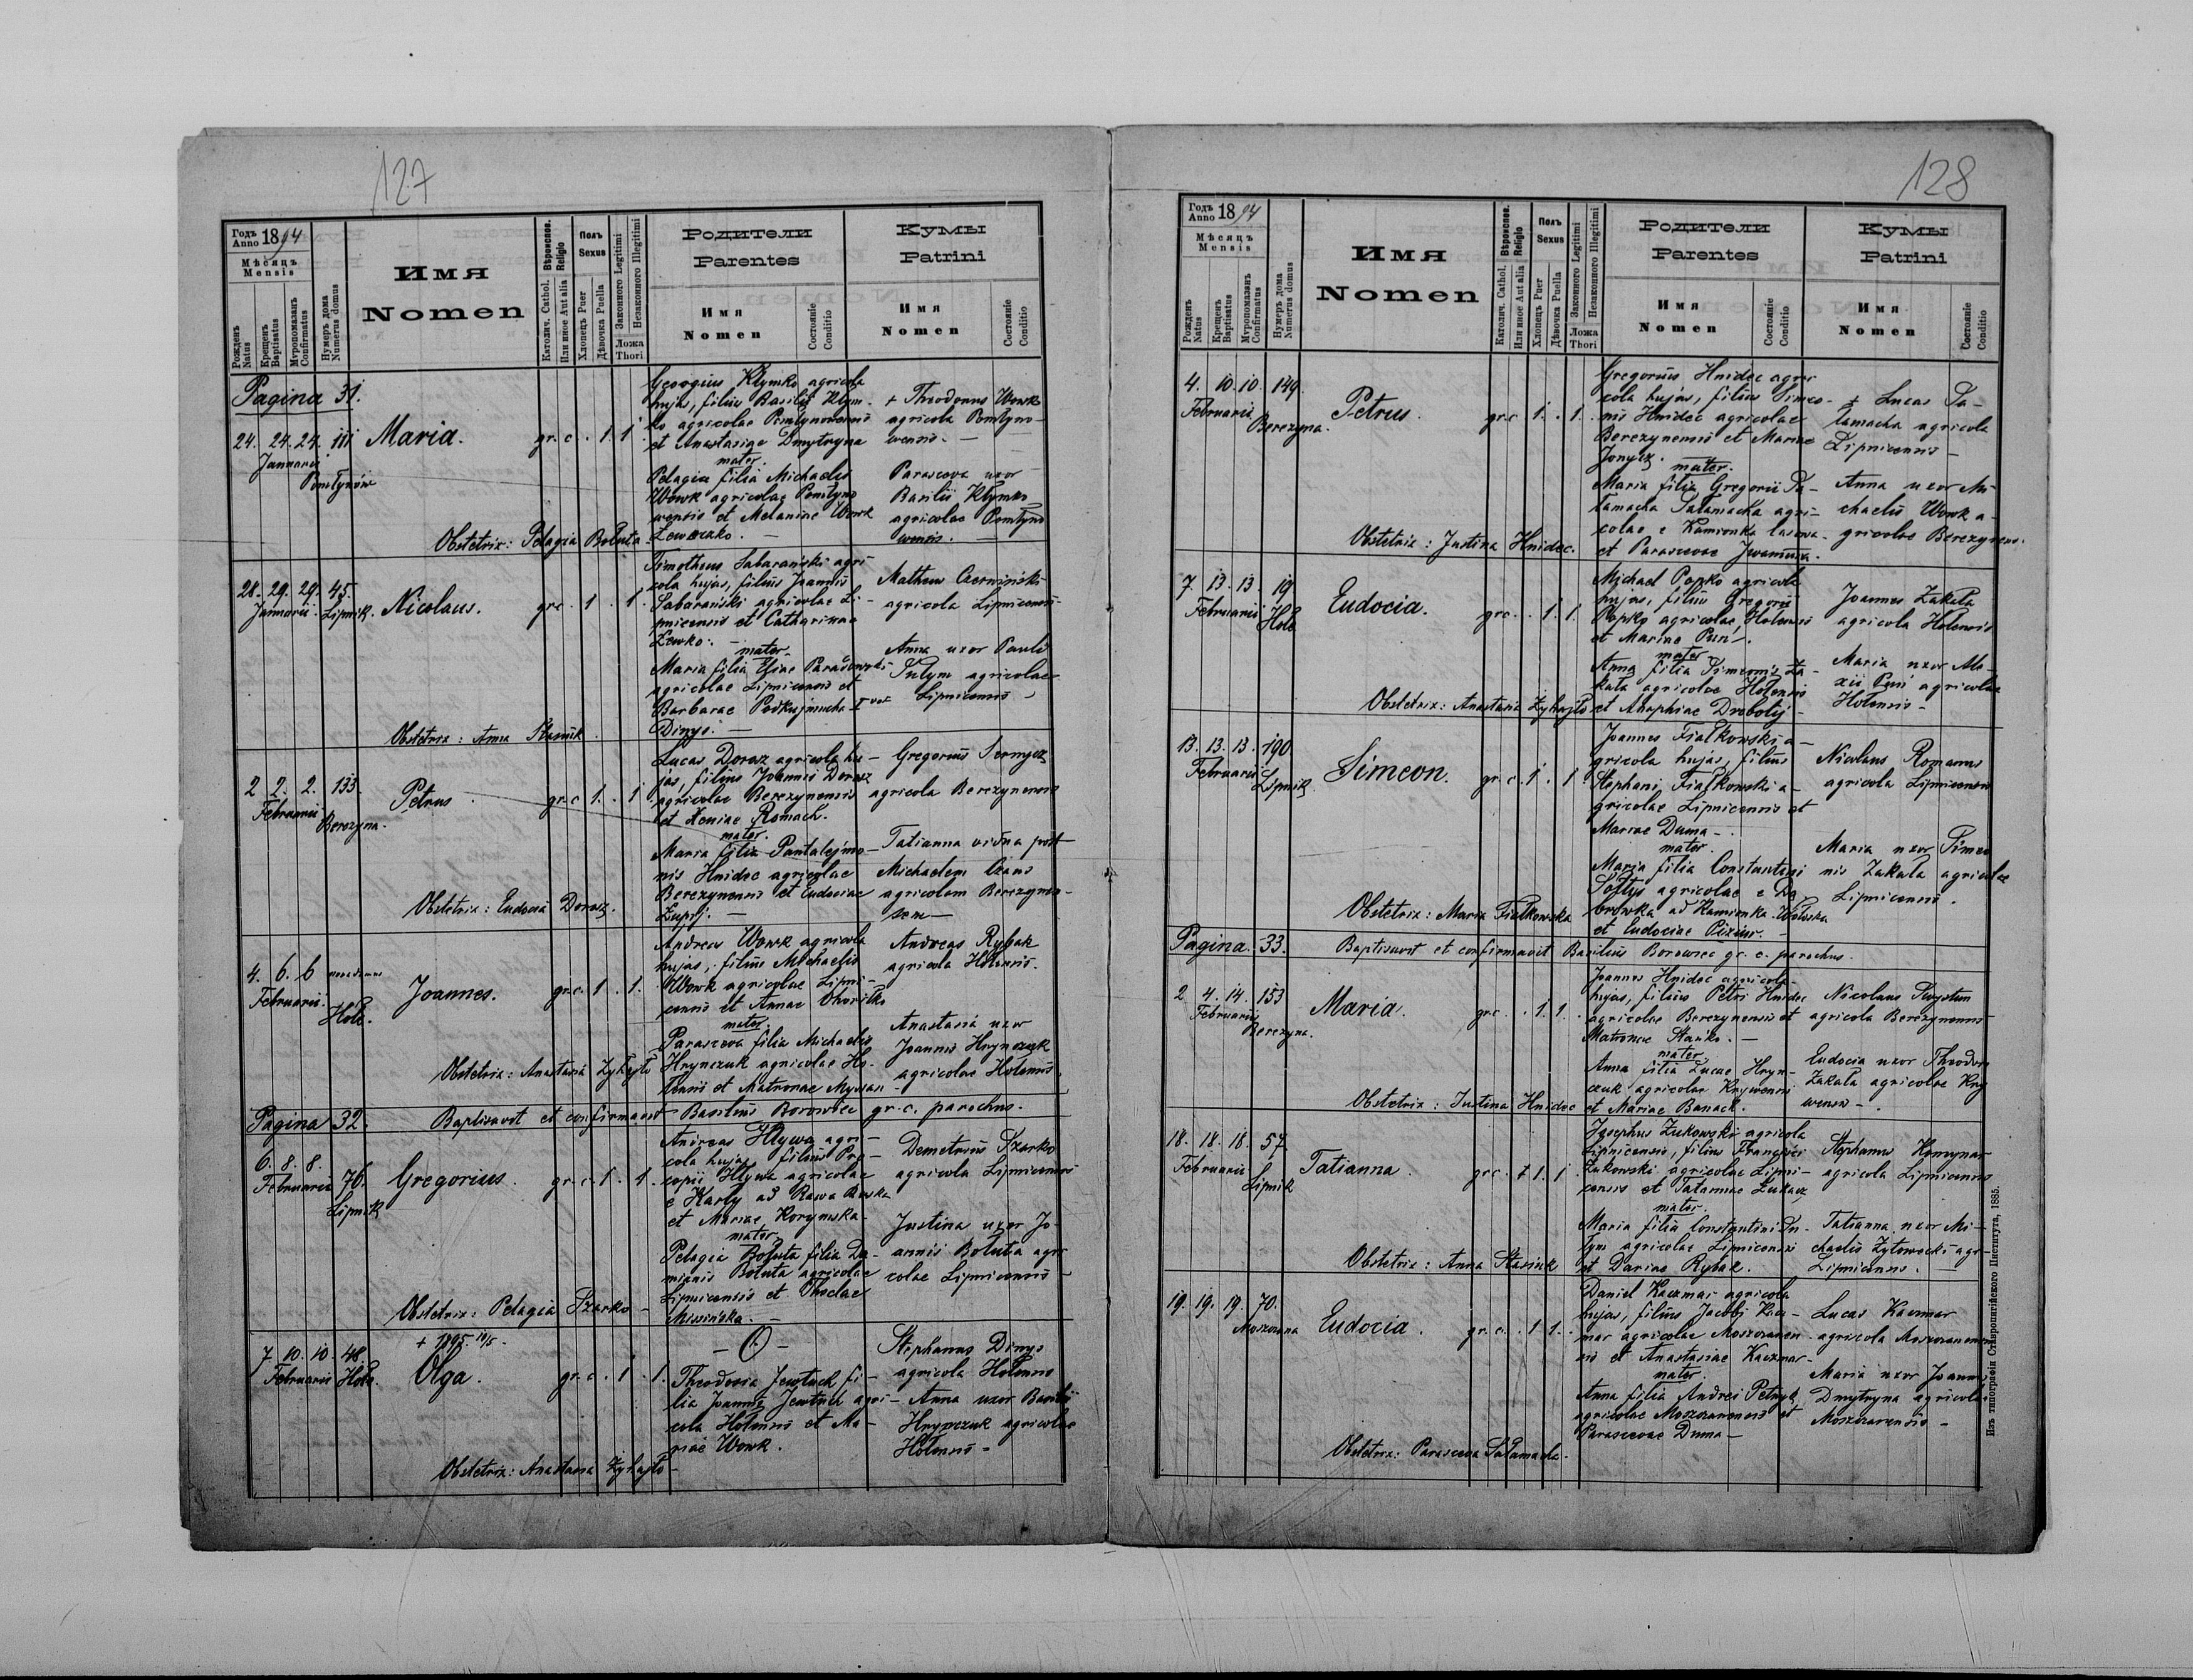 127
Годъ Anno 1894
Мѣсяцъ Mensis
Рожденъ Natus
Крещенъ Baptisatus
Мѵропомазанъ Confirmatus
Нумеръ дома Numerus domus
Имя Nomen
Вѣроисповѣд. Religio
Католич. Cathol.
Или иное Aut alia
Полъ Sexus
Хлопецъ Puer
Дѣвочка Puella
Законного Legitimi
Незаконного Illegitimi
Ложа Thori
Родители Parentes
Имя Nomen
Состояніе Conditio
Кумы Patrini
Имя Nomen
Состояніе Conditio
Pagina 31.
24. 24. 24. 111
Januarii
Maria.
gr. c. . 1. 1
Georgius Klymko agricola
hujas, filius Basilii Klym-
ko agricolae
et Anastasiae Dmytryna
mater.
Pelagia filia Michaelis
Wowk agricolae
et Melaniae Wowk
+ Theodorus Wowk
agricola
Parasceva uxor
Basilii Klymko
agricolae
Obstetrix: Pelagia Bołuta
28. 29. 29. 45.
Januarii. Lipnik.
Nicolaus.
gr c . 1 . 1.
Timotheus Sabarański agri
cola hujas, filius Joannis
Sabarański agricolae Li-
pnicensis et Catharinae
Lewko. — mater.
Maria filia Eliae
agricolae Lipnicensis et
Barbarae
Dinys. —
Matheus Czerniński
agricola Lipnicensis
Anna uxor Pauli
agricolae
Lipnicensis
Obstetrix: Anna Stasiuk.
2 2. 2. 133.
Februarii
Berezyna.
Petrus.
gr. c 1. . 1.
Lucas Dorosz agricola hu-
jas, filius Joannis Dorosz
agricolae Berezynensis
et Xeniae Romach.
mater.
Maria filia Pantalejmo-
nis Hnidec agricolae
Berezynensis et Eudociae
Łupij. —
Gregorius
agricola Berezynensis
Tatianna vidua post
Michaelem
agricolam Berezynen-
sem —
Obstetrix: Eudocia Dorosz.
4. 6. 6
Februarii
Hołe.
Joannes.
gr. c. 1 . 1.
Andreas Wowk agricola
hujas, filius Michaelis
Wowk agricolae Lipni-
censis et Annae
mater.
Parasceva filia Michaelis
Hrynczuk agricolae Ho-
lensis et Matronae
Andreas Rybak
agricola Holensis.
Anastasia uxor
Joannis Hrynczuk
agricolae Holensis.
Obstetrix: Anastasia Zyhajło
Pagina 32.
Baptisavit et confirmavit Basilius Borowiec gr. c. parochus.
6. 8. 8.
Februarii 76.
Lipnik
Gregorius.
gr. c. 1 . 1.
Andreas Hływa agri-
cola hujas, filius Pro-
copii Hływa agricolae
e Karly ad Rawa Ruska
et Mariae
mater.
Pelagia Bołuta filia Da-
mianis Bołuta agricolae
Lipnicensis et Theclae
Demetrius Szarko
agricola Lipnicensis
Justina uxor Jo-
annis Bołuta agri
colae Lipnicensis
Obstetrix: Pelagia Szarko -
7. 10. 10. 48.
Februarii Hołe.
+ 1895
Olga.
gr. c. . 1 . 1.
— O —
Theodosia Jewtuch fi-
lia Joannis Jewtuch agri-
cola Holensis et Ma-
riae Wowk.
Stephanus Dinys
agricola Holensis
Anna uxor Basilii
Hrynczuk agricolae
Holensis -
Obstetrix: Anastasia Zyhajło -
128
Годъ Anno 1894
Мѣсяцъ Mensis
Рожденъ Natus
Крещенъ Baptisatus
Мѵропомазанъ Confirmatus
Нумеръ дома Numerus domus
Имя Nomen
Вѣроисповѣд. Religio
Католич. Cathol.
Или иное Aut alia
Полъ Sexus
Хлопецъ Puer
Дѣвочка Puella
Законного Legitimi
Незаконного Illegitimi
Ложа Thori
Родители Parentes
Имя Nomen
Состояніе Conditio
Кумы Patrini
Имя Nomen
Состояніе Conditio
4. 10. 10. 149.
Februarii
Berezyna.
Petrus.
gr. c 1. . 1.
Gregorius Hnidec agri-
cola hujas, filius Simeo-
nis Hnidec agricolae
Berezynensis et Mariae
mater.
Maria filia Gregorii Sa-
łamacha Sałamacha agri-
colae e Kamionka
et Parascevae
+ Lucas Sa-
łamacha agricola
Lipnicensis -
Anna uxor Mi-
chaelis Wowk a-
gricolae Berezynens.
Obstetrix: Justina Hnidec.
7 13. 13 19
Februarii
Hołe
Eudocia.
gr c. . 1. 1.
Michael Popko agricola
hujas, filius Gregorii
Popko agricolae Holensis
et Mariae Puń.
mater.
Anna filia Simeonis Za-
kała agricolae Holensis
et Agaphiae Drobotij -
Joannes Zakała
agricola Holensis
Maria uxor Ale-
xii Puń agricolae
Holensis -
Obstetrix: Anastasia Zyhajło
13. 13. 13. 190
Februarii
Lipnik
Simeon.
gr. c. 1. . 1
Joannes Fiałkowski a-
gricola hujas, filius
Stephani Fiałkowski a-
gricolae Lipnicensis et
Mariae Duma -
mater.
Maria filia Constantini
Sołtys agricolae e Dą
browka ad Kamionka Wołoska
et Eudociae
Nicolaus Romanus
agricola Lipnicensis
Maria uxor Simeo
nis Zakała agricolae
Lipnicensis.
Obstetrix: Maria Fiałkowska
Pagina 33.
Baptisavit et confirmavit Basilius Borowiec gr. c. parochus.
2 4. 14. 153
Februarii
Berezyna.
Maria.
gr c. . 1. 1.
Joannes Hnidec agricola
hujas, filius Petri Hnidec
agricolae Berezynensis et
Matronae Stańko. —
mater
Anna filia Lucae Hryn-
czuk agricolae Krywensis
et Mariae Banach.
Nicolaus
agricola Berezynensis
Eudocia uxor Theodori
Zakała agricolae Kry
wensis -
Obstetrix: Justina Hnidec
18. 18. 18. 57.
Februarii
Lipnik
Tatianna.
gr c. . 1. 1
Josephus Żukowski agricola
Lipnicensis, filius Francisci
Żukowski agricolae Lipni-
censis et Tatannae Łukacz
mater.
Maria filia Constantini
agricolae Lipnicensis
et Dariae Rybak.
Stephanus
agricola Lipnicensis
Tatianna uxor Mi-
chaelis Żytowecki agr-
Lipnicensis.
Obstetrix: Anna Stasiuk
19. 19. 19. 70.
Moszczana
Eudocia.
gr. c. . 1 1.
Daniel Kaczmar agricola
hujas, filius Jacobi Kacz-
mar agricolae Moszczanen
sis et Anastasiae Kaczmar-
mater.
Anna filia Andrei Petryk
agricolae Moszczanensis et
Parascevae Duma -
Lucas Kaczmar
agricola Moszczanensis
Maria uxor Joannis
Dmytryna agricolae
Moszczanensis -
Obstetrix: Parasceva Sałamacha.
Изъ типографіи Ставропигійского Института, 1885.